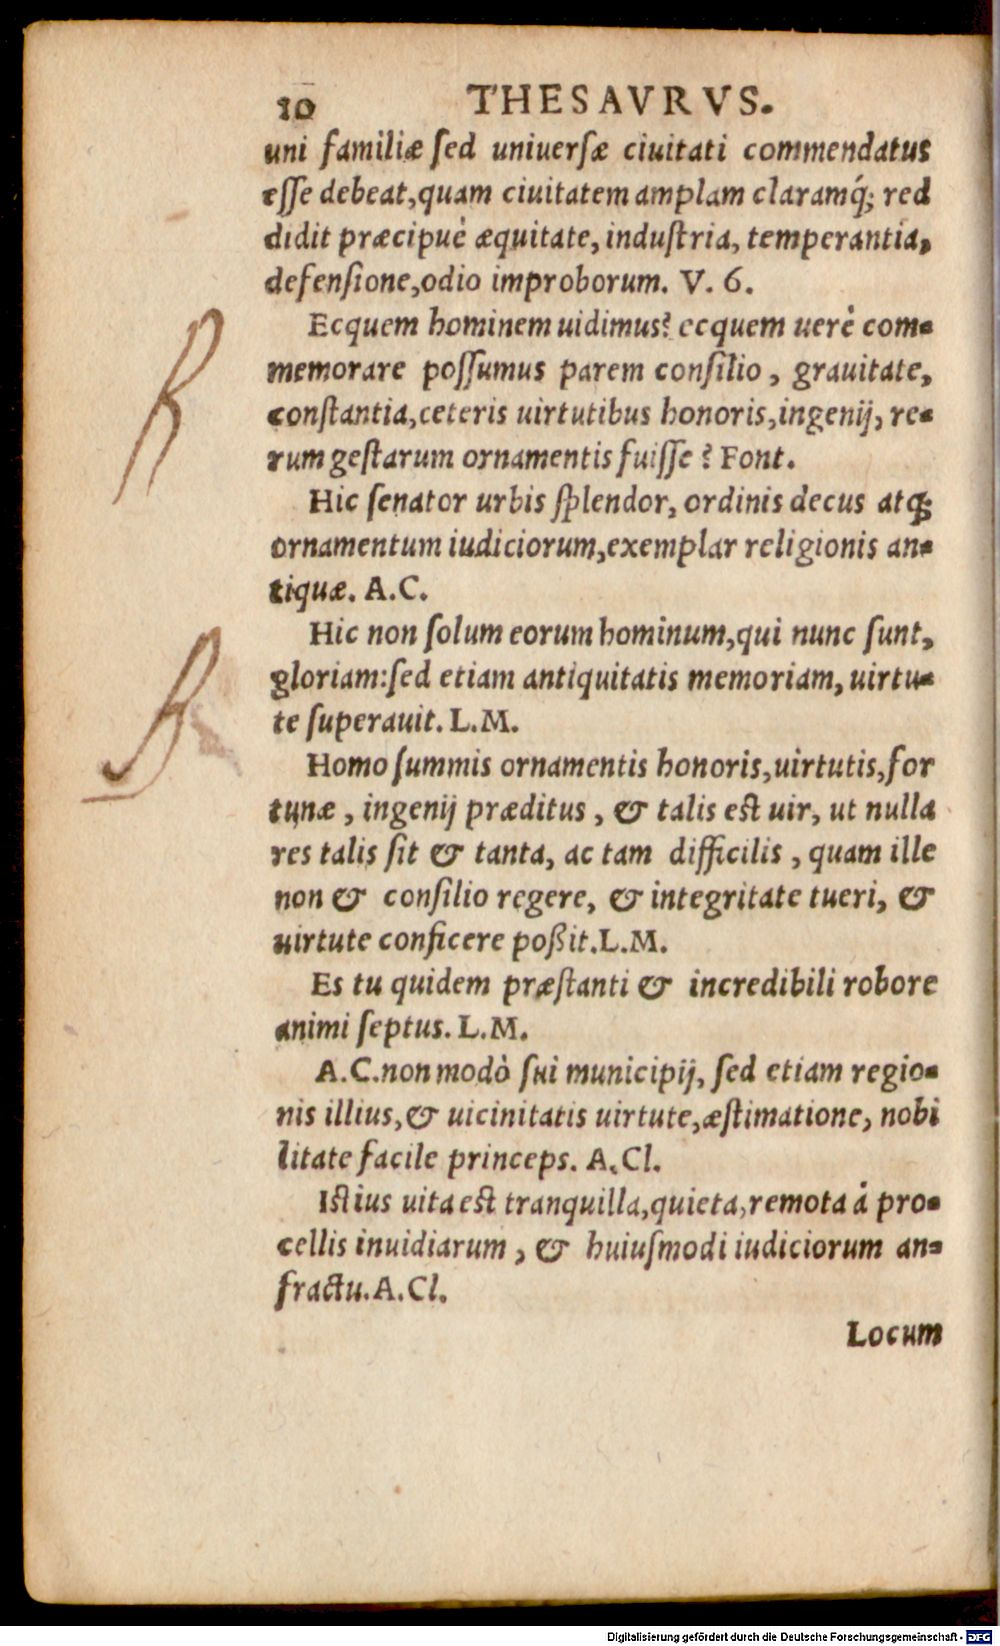 10 THESAVRVS.
uni familiæ ſed uniuerſæ ciuitati commendatus
eſſe debeat,quam ciuitatem amplam claramq́; red
didit præcipuè æquitate, induſtria, temperantia,
defenſione,odio improborum. V. 6.
Ecquem hominem uidimus? ecquem uerè com-
memorare poſſumus parem conſilio, grauitate,
conſtantia,ceteris uirtutibus honoris,ingenij, re-
rum geſtarum ornamentis fuiſſe? Font.
Hic ſenator urbis ſplendor, ordinis decus atq;
ornamentum iudiciorum,exemplar religionis an-
tiquæ. A.C.
Hic non ſolum eorum hominum,qui nunc ſunt,
gloriam:ſed etiam antiquitatis memoriam, uirtu-
te ſuperauit. L.M.
Homo ſummis ornamentis honoris,uirtutis,for
tunæ, ingenij præditus, & talis est uir, ut nulla
res talis ſit & tanta, ac tam difficilis, quam ille
non & conſilio regere, & integritate tueri, &
uirtute conficere poßit.L.M.
Es tu quidem præſtanti & incredibili robore
animi ſeptus. L.M.
A.C.non modò ſui municipij, ſed etiam regio-
nis illius,& uicinitatis uirtute,æſtimatione, nobi
litate facile princeps. A.Cl.
Istius uita est tranquilla,quieta,remota à pro-
cellis inuidiarum, & huiuſmodi iudiciorum an-
fractu.A.Cl.
Locum
Digitalisierung gefördert durch die Deutsche Forschungsgemeinschaft - DFG